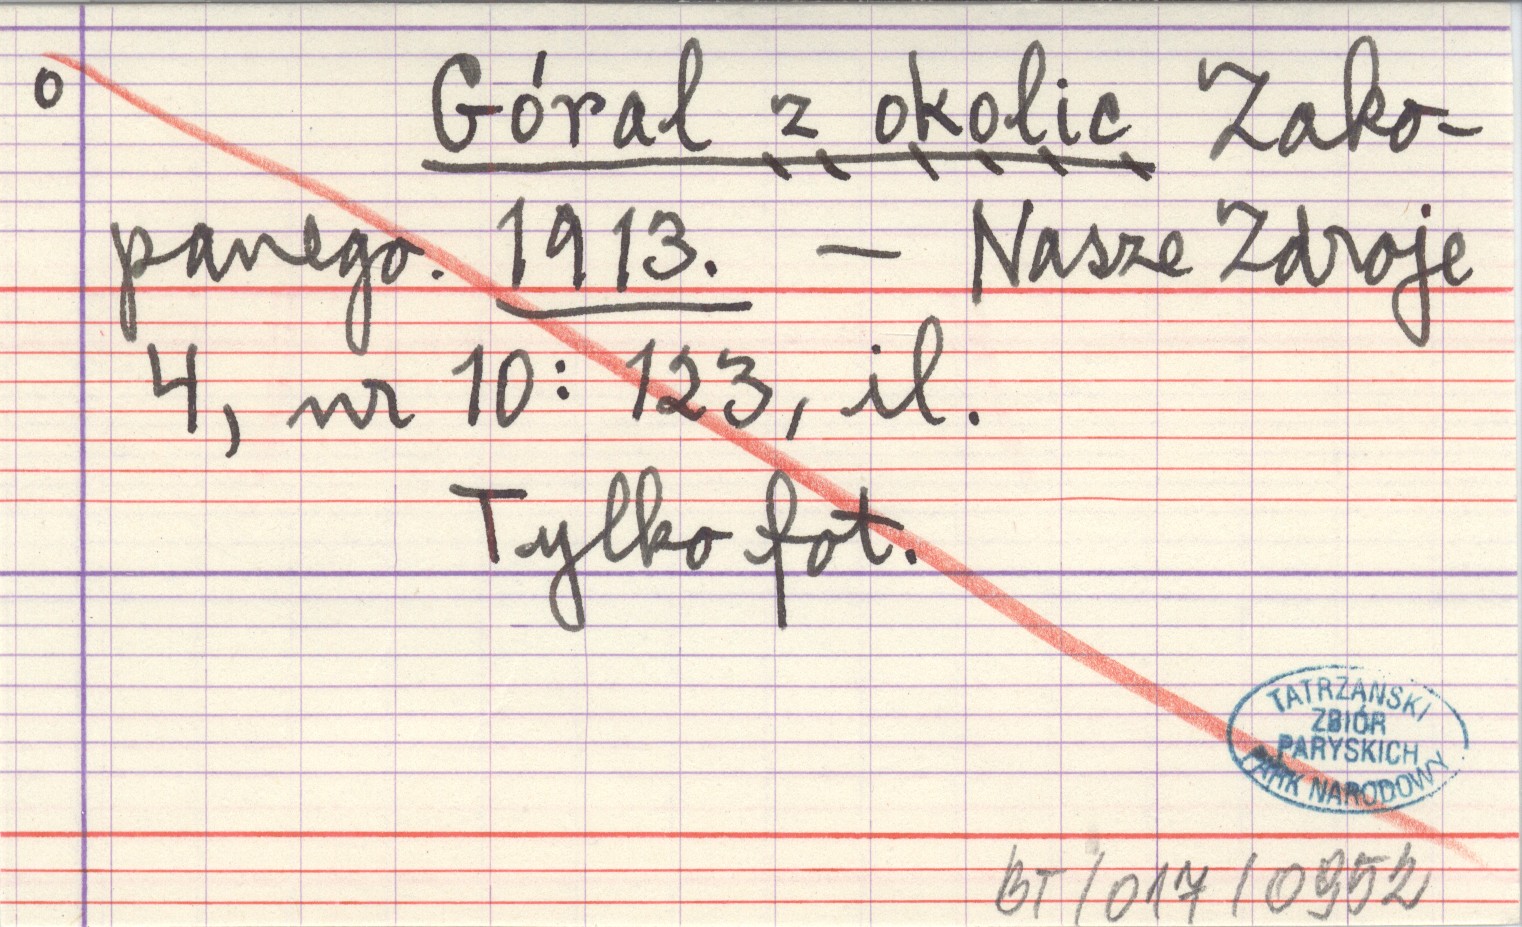 o Góral z okolic Zako-
panego. 1913. — Nasze Zdroje
4, nr 10: 123, il.
Tylko fot.
TATRZAŃSKI
ZBIÓR
PARYSKICH
PARK NARODOWY
BT/017/0952